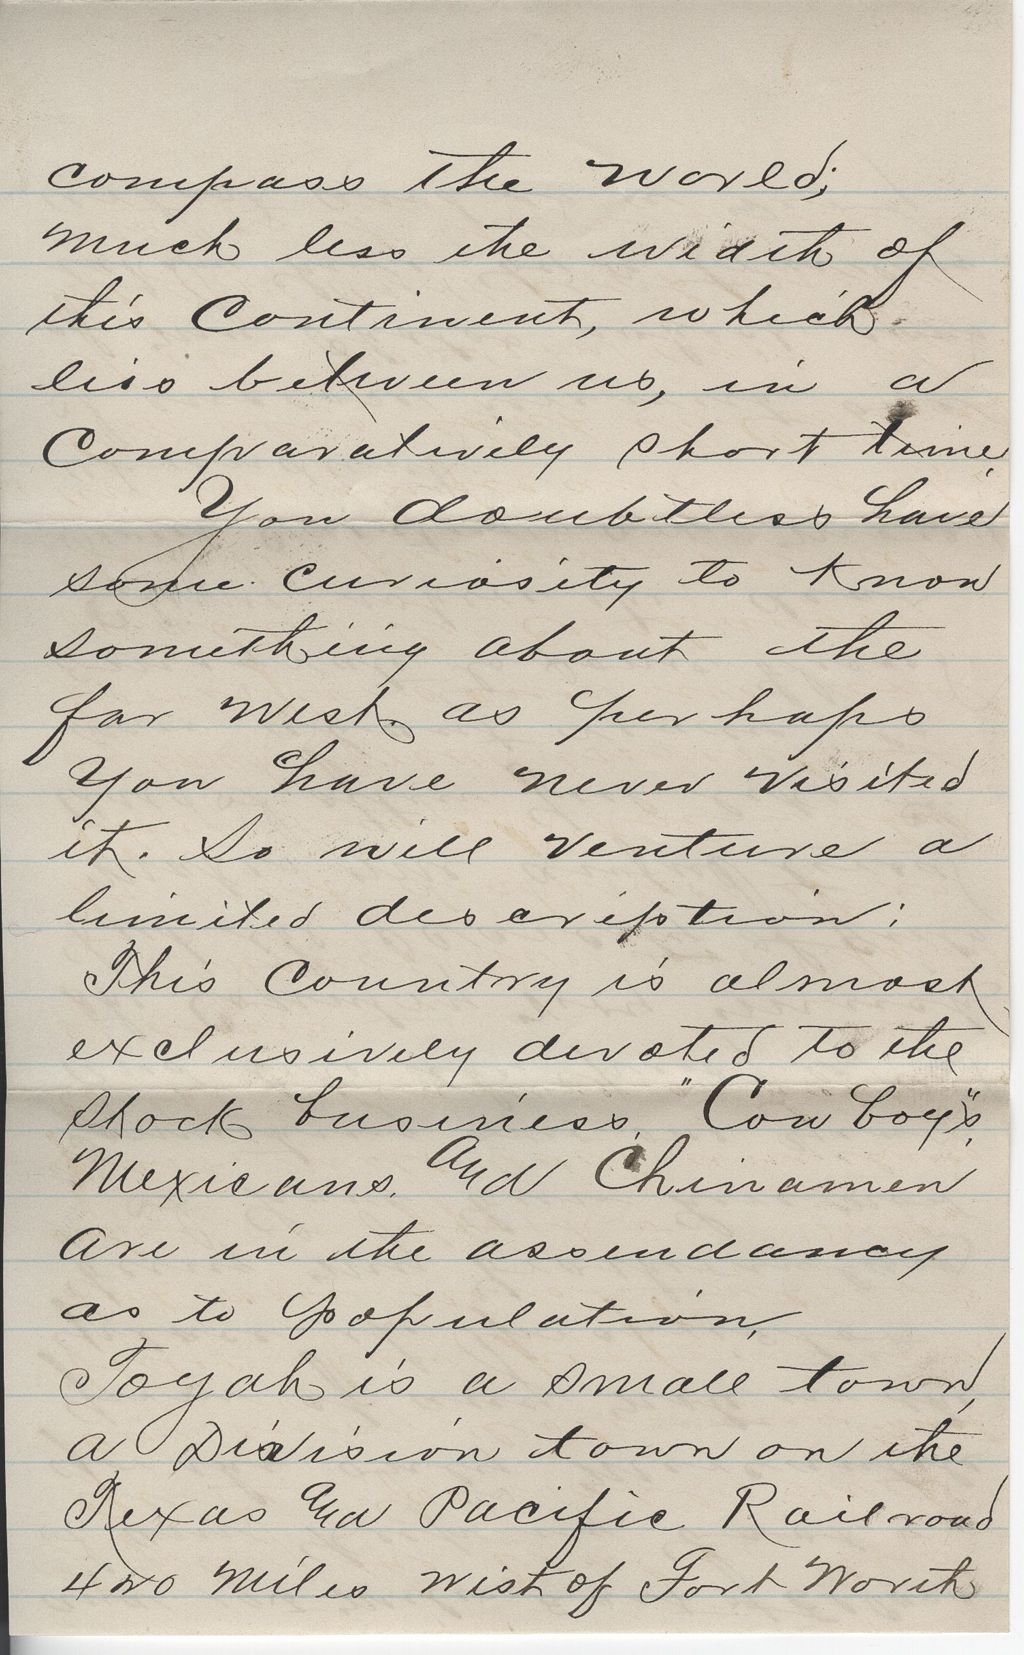 compass the world;
much less the width of
this Continent, which
lies between us, in a
Comparatively short time.
You doubtless have
some curiosity to know
something about the
far West. as perhaps
you have never visited
it. So will venture a
limited description:
This Country is almost
exclusively devoted to the
Stock business, "Cow boy's",
Mexicans, and Chinamen
are in the assendancy
as to population,
Toyah is a small town,
a Division town on the
Texas and Pacific Railroad
420 Miles west of Fort Worth